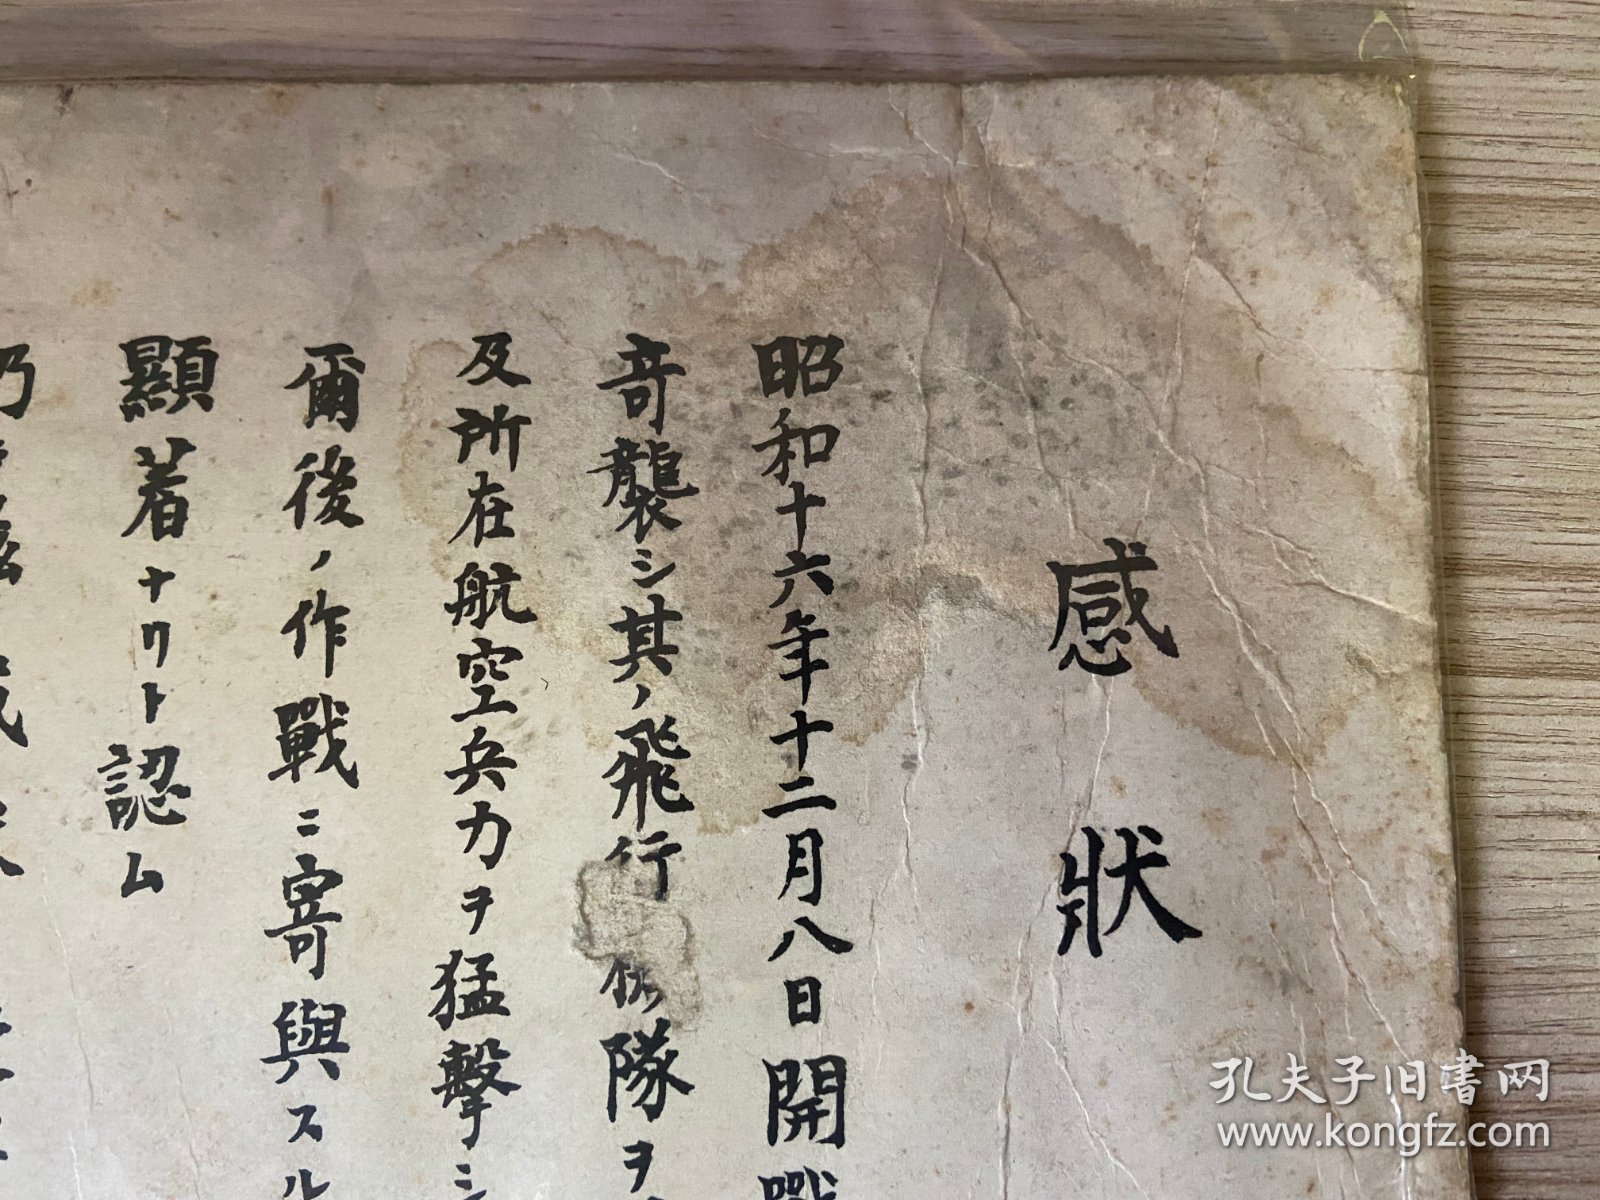 感狀
昭和十六年十二月八日開戰
奇襲シ其ノ飛行機隊ヲ
及所在航空兵力ヲ猛擊シ
爾後ノ作戰ニ寄與スル
顯著ナリト認ム
乃
孔夫子旧书网
www.kongfz.com